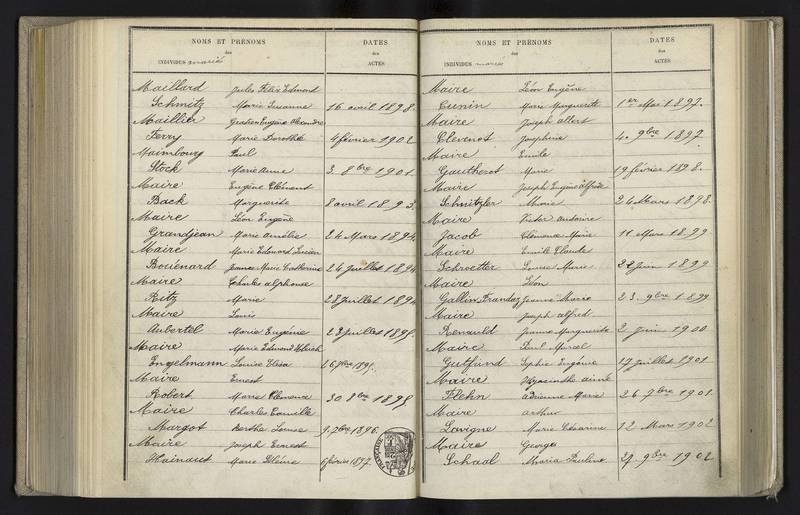 NOMS ET PRÉNOMS
des
INDIVIDUS mariés
DATES
des
ACTES
Maillard Jules Félix Edmond
Schmitz Marie Suzanne 16 avril 1898.
Maillier Gratien Eugène Alexandre
Ferry Marie Dorothée 4 février 1902
Maimbourg Paul
Stock Marie Anne 3. 8bre 1901.
Maire Eugène Clément
Back Marguerite 8 avril 1893.
Maire Léon Eugène
Grandjean Marie Amélie 24 Mars 1894.
Maire Marie Edouard Lucien
Bouénard Jeanne Marie Catherine 24 juillet 1894
Maire Charles alphonse
Ritz Marie 28 juillet 1894
Maire Louis
Aubertel Marie Eugénie 23 juillet 1895.
Maire Marie Edmond
Engelmann Louise 16 7bre 1895.
Maire Ernest
Robert Marie Clémence 30 8bre 1895
Maire Charles Camille
Margot Berthe Louise 9. 7bre 1896.
Maire Joseph Ernest
Hainaut Marie 6 février 1897.
NOMS ET PRÉNOMS
des
INDIVIDUS mariés
DATES
des
ACTES
Maire Léon Eugène
Cunin Marie Marguerite 1er Mai 1897.
Maire Joseph albert
Clevenot Joséphine 4. 9bre 1897.
Maire Emile
Gautherot Marie 19 février 1898.
Maire Joseph Eugène alfred
Schnitzler Marie 26 Mars 1898.
Maire Victor Antoine
Jacob Clémence Marie 11 Mars 1899.
Maire Emile Claude
Schvetter Louise Marie 22 juin 1899
Maire Léon
Gallin Jeanne 23. 9bre 1899.
Maire Joseph alfred
Renauld Jeanne Marguerite 2 juin 1900
Maire Paul Marcel
Gutfund Sophie Eugénie 17 juillet 1901
Maire Hyacinthe aimé
Flehn Adrienne Marie 26 7bre 1901.
Maire arthur
Lavigne Marie Césarine 12 Mars 1902
Maire George
Schaal Maria Pauline 29. 9bre 1902